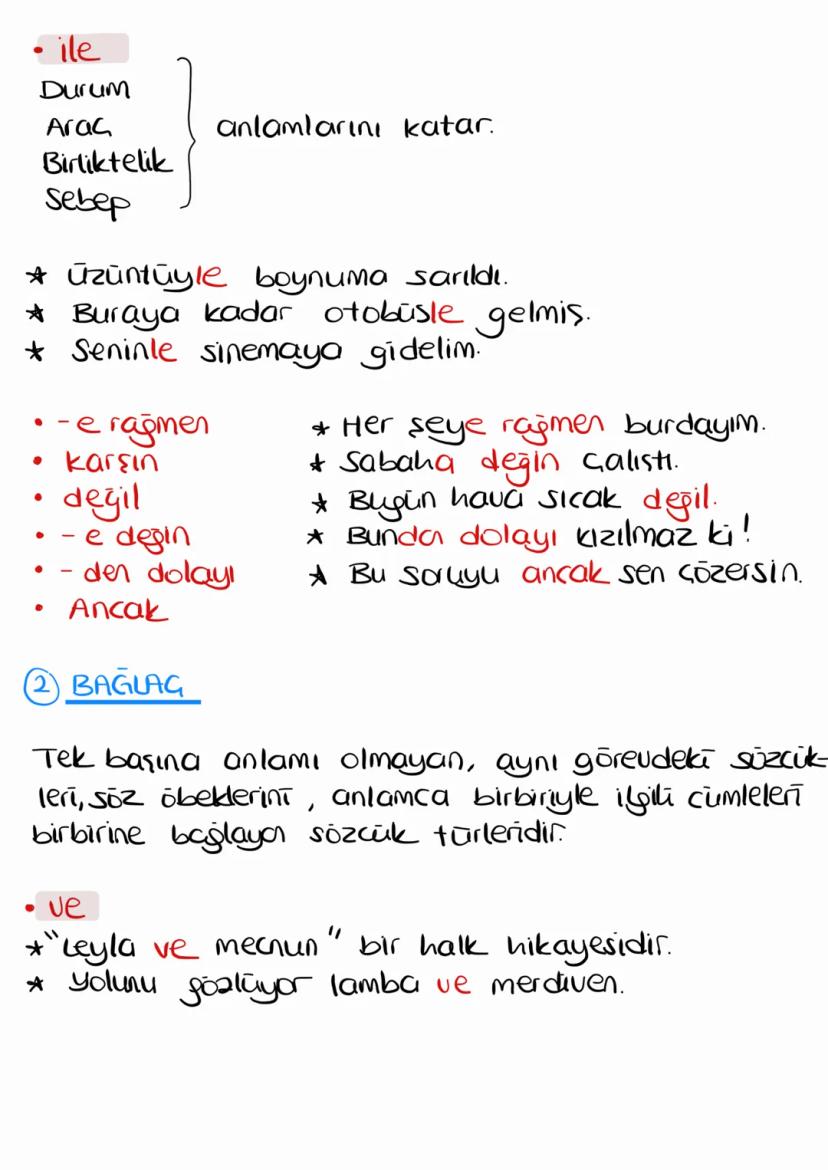 • ile
Durum
Araç
Birliktelik
Sebep
anlamlarını katar.
* Üzüntüyle boynuma sarıldı.
* Buraya kadar otobüsle gelmiş.
* Seninle sinemaya gidelim.
• -e rağmen
• karşın
• değil
• -e değin
• -den dolayı
• Ancak
* Her şeye rağmen burdayım.
* Sabaha değin çalıştı.
* Bugün hava sıcak değil.
* Bundan dolayı kızılmaz ki!
* Bu soruyu ancak sen çözersin.
2 BAĞLAÇ
Tek başına anlamı olmayan, aynı görevdeki sözcük-
leri, söz öbeklerini, anlamca birbiriyle ilgili cümleleri
birbirine bağlayan sözcük türleridir.
• ve
* "Leyla ve mecnun" bir halk hikayesidir.
* Yolunu gözlüyor lamba ve merdiven.